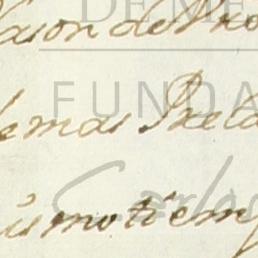 DEME
cion de Pro
FUNDA
demas Prela
Carlos
ismo tiemp